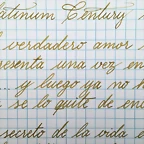 Platinum Century
l verdadero amor s
resenta una vez en
... y luego ya no h
se lo quite de enc
secreto de la vida e